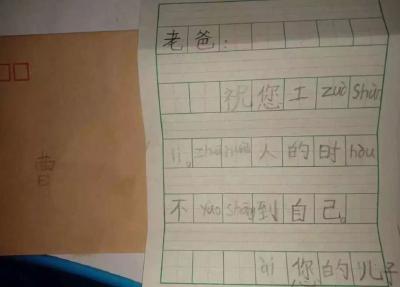 老爸：
祝您工 zuò shùn
lì。zhuā huài 人的时 hòu
不 yào shāng 到自己。
ài 您的儿子
曹